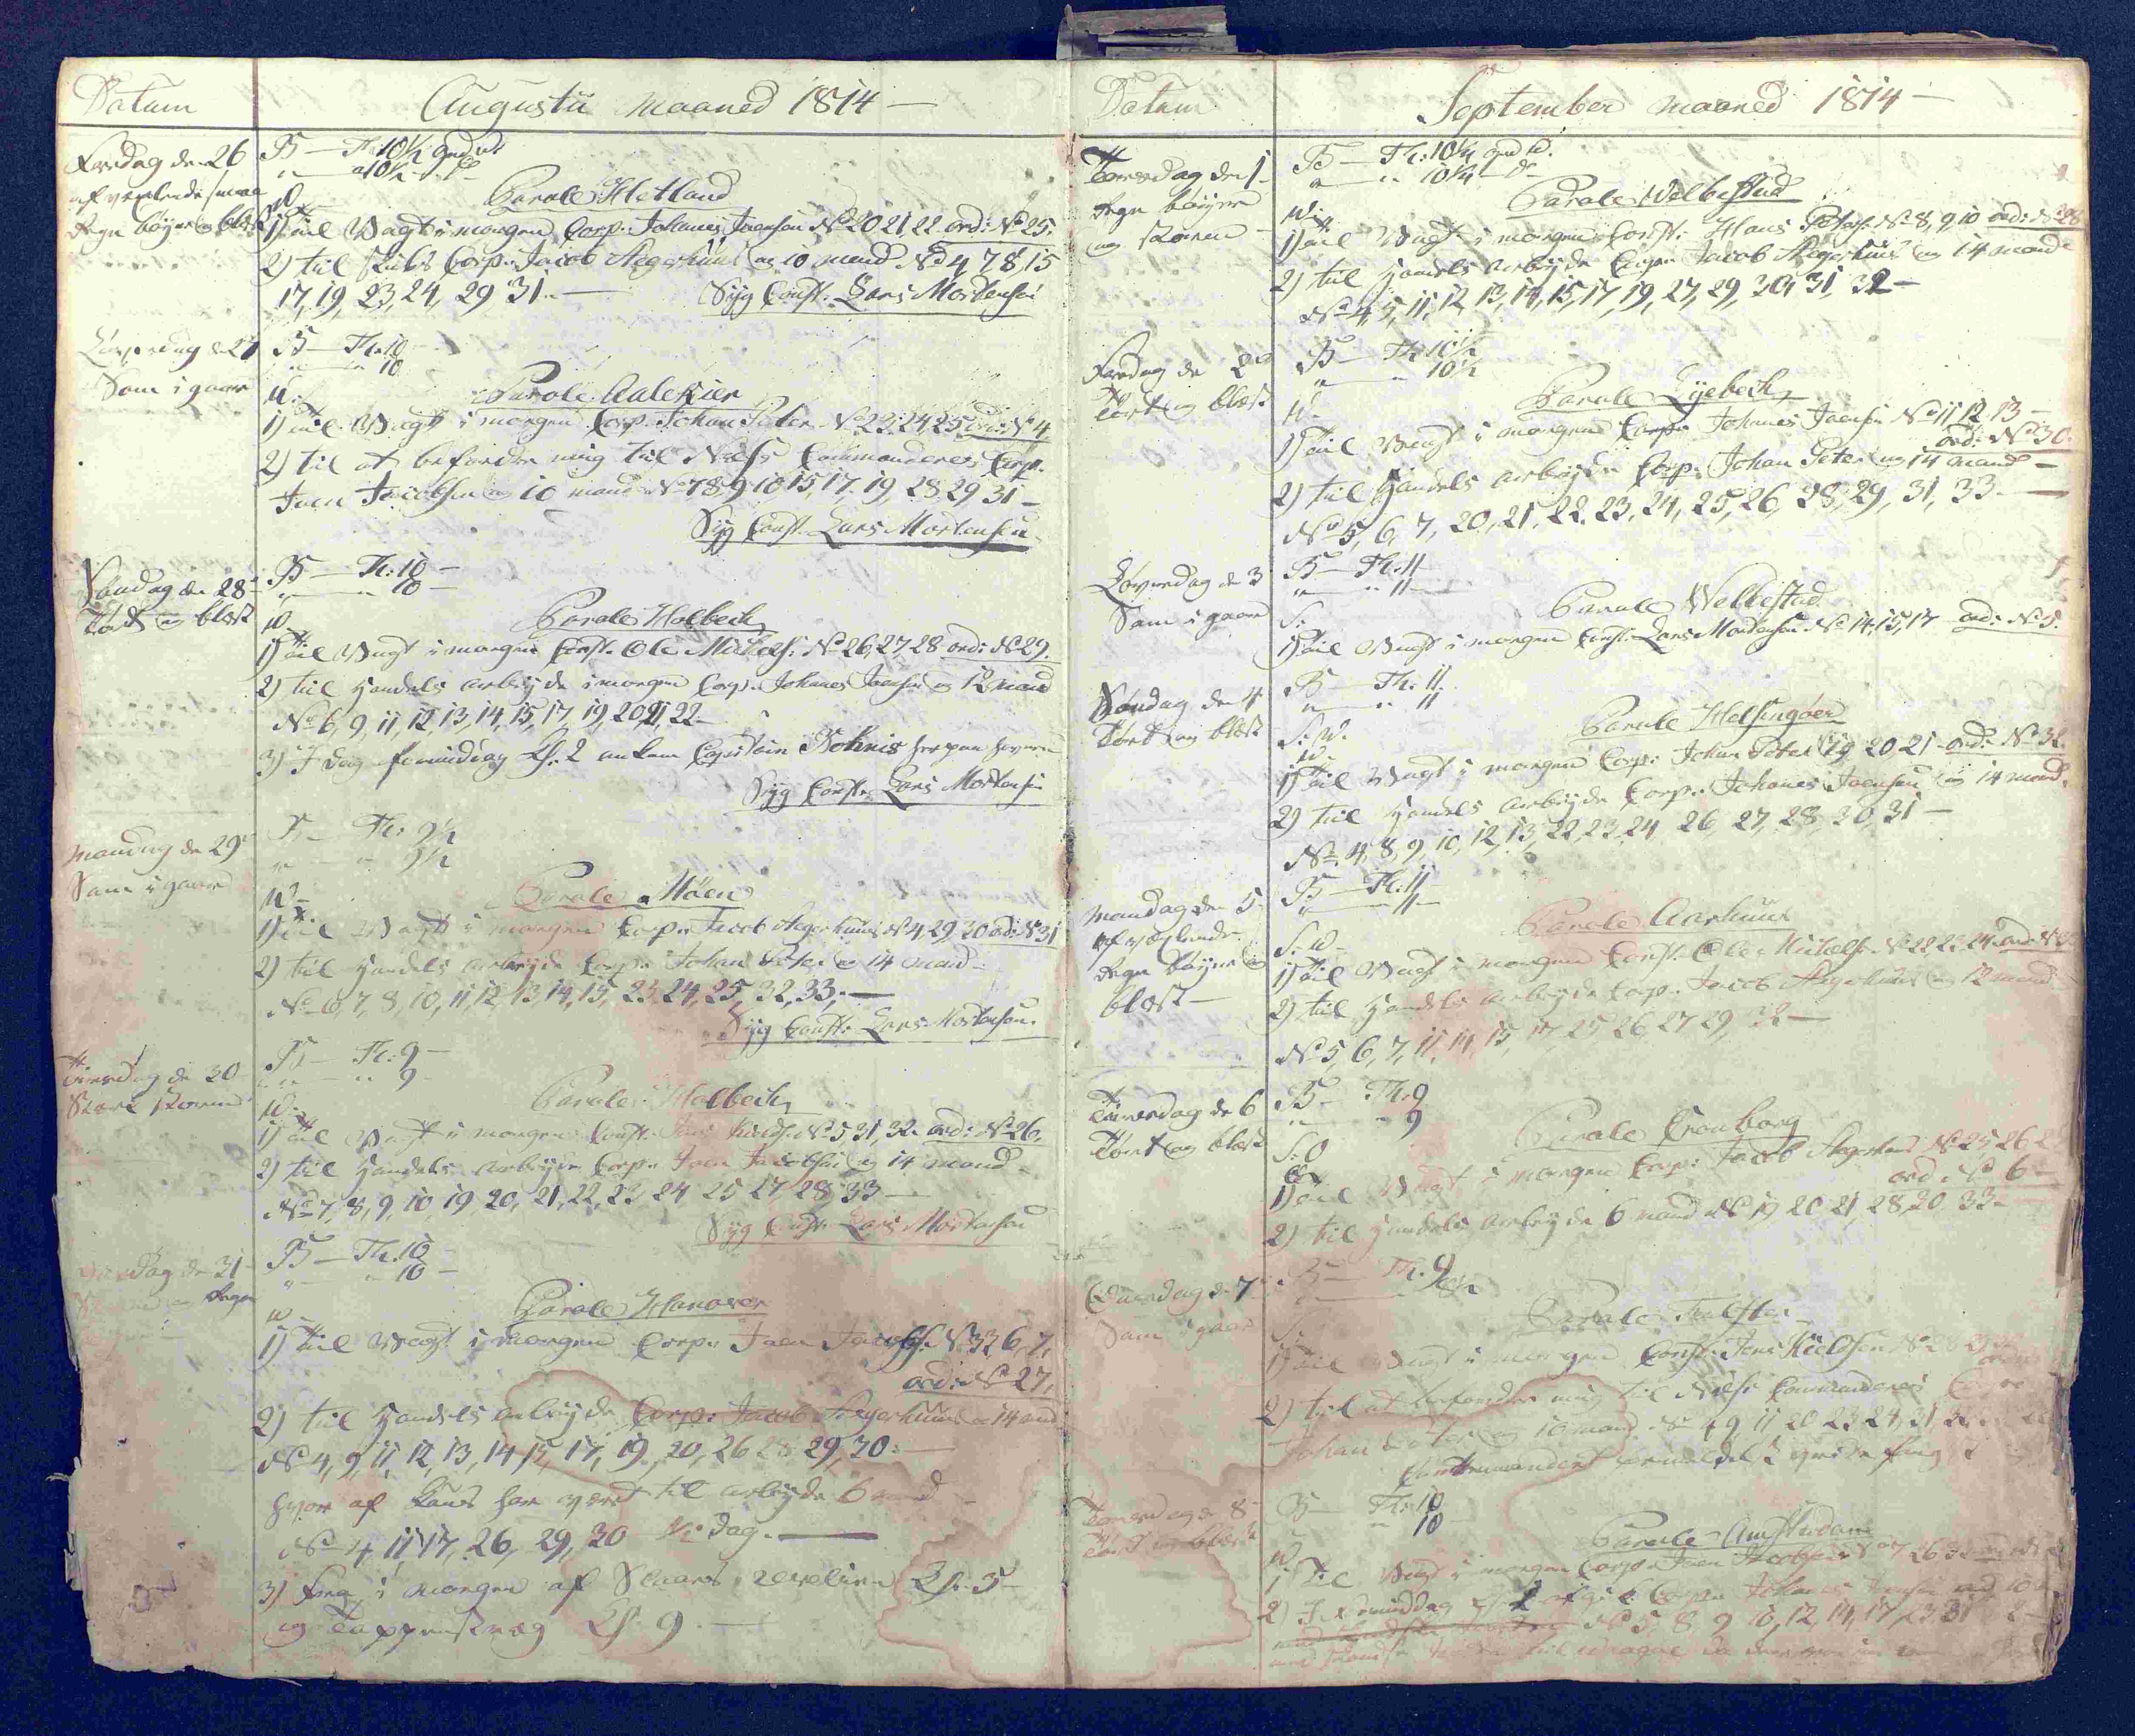 Datum
Augustii maaned 1814 —
Fredag den 26
afvexlende smaa
Regn bøyer og blæst
B — Th: 10½ grad w:
" — " 10½ — do
W
Parole Hetland
1) Til Vagt i morgen Corp: Johanes Joensen No 20 21 22 ord: No 25.
2) til Skibs Corp: Jacob Aegerhuus og 10 mand No 4, 7 8, 15
17, 19, 23, 24, 29 31. —
Syg Const: Lars Mortensen
Løverdag d 27
Som i gaar
B — Th: 10 —
" — " 10
W:
Parole Aalekier
1) Til Vagt i morgen Corp. Johan Peter No 23, 24, 25 ord: No 4
2) til at befordre mig til Næss Commanderes Corp.
Joen Jacobsen og 10 mand No 7 8, 9 10 15, 17, 19, 28 29 31 —
Syg Const. Lars Mortensen
Søndag den 28
Tørt og blæst
B — Th: 10 —
" — " 10 —
W
Parole Holbech
1) Til Vagt i morgen Const. Ole Michels: No 26, 27 28 ord: No 29.
2) til Handels arbeyde i morgen Corp: Johanes Joensen og 12 mand
No 6, 9, 11, 12, 13, 14, 15, 17, 19, 20, 21, 22 —
3) I Dag formiddag Kl. 2 ankom Capitain Bohnis her paa havnen
Syg Const: Lars Mortensen
Mandag de 29
Som i gaar
B — Th: 9½
" — " 9½
W
Parole Møen
1) Til Vagt i morgen Corp: Jacob Aegerhuus No 4, 29, 30 ord: No 31
2) til Handels arbeyde Corp: Johan Peter og 14 mand —
No 6, 7, 8, 10, 11, 12, 13, 14, 15, 23, 24, 25, 32, 33, —
Syg Const: Lars Mortensen
Tiirsdag de 30
Stærk storm
B — Th: 9 —
" — " 9 —
W:
Parole Holbech
1) Til Vagt i morgen Const: No 5 31, 32 ord: No 26.
2) til Handels arbeyde Corp: Joen Jacobsen og 14 mand —
No 7, 8, 9, 10, 19, 20, 21, 22, 23 24 25 27 28, 33 —
Syg Const: Lars Mortensen
dag de 31 —
og Regn
B — Th: 10 —
" — " 10 —
W
Parole Hanover
1) Til Vagt i morgen Corp: Joen Jacobs: No 33 6, 7,
ord: No 27,
2) til Handels arbeyde Corp: Jacob Aegerhuus og 14 md
No 4, 9, 11, 12, 13, 14 15, 17, 19, 20, 26 28 29, 30: —
hvor af kuns har været til arbeyde 6 mand
No 4, 11 17, 26, 29, 30 ½ dag. —
3) Fra i morgen af Slaaes revelien Kl: 5 —
og Tappenstræg Kl. 9. —
Datum
September maaned 1814 —
Torsdag den 1
Regn bøyer
og storm —
B — Th: 10¼ grad w.
" — " 10¼ — do
W:
Parole Welbestad
1) Til Vagt i morgen Const: Hans No 8, 9, 10 ord: No 28
2) til Handels arbeyde Corp: Jacob Aegerhuus og 14 mand
No 4, 5, 11, 12, 13, 14, 15, 17, 19, 27, 29, 30, 31, 32 —
Fredag de 2
Tørt og blæst
B — Th: 10½
" — " 10½
W
Parole Lyebech
1) Til Vagt i morgen Corp: Johanes Joensen No 11 12 13 —
ord: No 30.
2) til Handels arbeyde Corp: Johan Peter og 14 mand —
No 5, 6, 7, 20, 21, 22, 23, 24, 25, 26, 28, 29, 31, 33. —
Løverdag de 3
Som i gaar
B — Th: 11
" — " 11 —
S:
Parole Welbestad
1) Til Vagt i morgen Const: Lars Mortensen No 14, 15, 17 ord: No 5.
Søndag de 4
Tørt og blæst
B — Th: 11.
" — " 11
S: W.
Parole Helsingøer
1) Til Vagt i morgen Corp: Johan Peter 19, 20, 21 ord: No 32.
2) til Handels arbeyde Corp: Johanes Joensen og 14 mand.
No 4, 8, 9, 10, 12, 13, 22, 23, 24, 26, 27, 28, 30, 31 —
Mandag den 5
afvexlende
Regn bøyer og
blæst —
B — Th: 11 —
" — 11 —
S: W —
Parole Aarhuus
1) Til Vagt i morgen Const: Ole Michels: No 22, 23, 24 ord: No
2) til Handels arbeyde Corp: Jacob Aegerhuus og 12 mand
No 5, 6, 7, 11, 14, 15, 17, 25 26, 27 29, 32 —
Tiirsdag de 6
Tørt og blæst
B — Th: 9
" — " 9
S: O
Parole Cronborg
1) Til Vagt i morgen Corp: Jacob Aegerhuus No 25, 26 2
ord: No 6 —
2) til Handels arbeyde 6 mand No 19 20 21, 28, 30 33 —
Onsdag de 7
Som i gaar
B — Th. 9
Parole Falster
1) Til Vagt i morgen Const: Jens Kieldsen No 28 29
2) til at befordre mig til Næss Commanderes
Johan Peter og 10 mand No 4 9 11 20 23 24, 31, 32
Torsdag d 8
Tørt og blæst
B — Th: 10
" — 10
W
Parole Amsterdam
1) Til Vagt i morgen Corp: Joen Jacobsen
2) Formiddag Corp: Johanes Joensen 10
No 5, 8, 9, 10, 12, 14, 17, 23 31